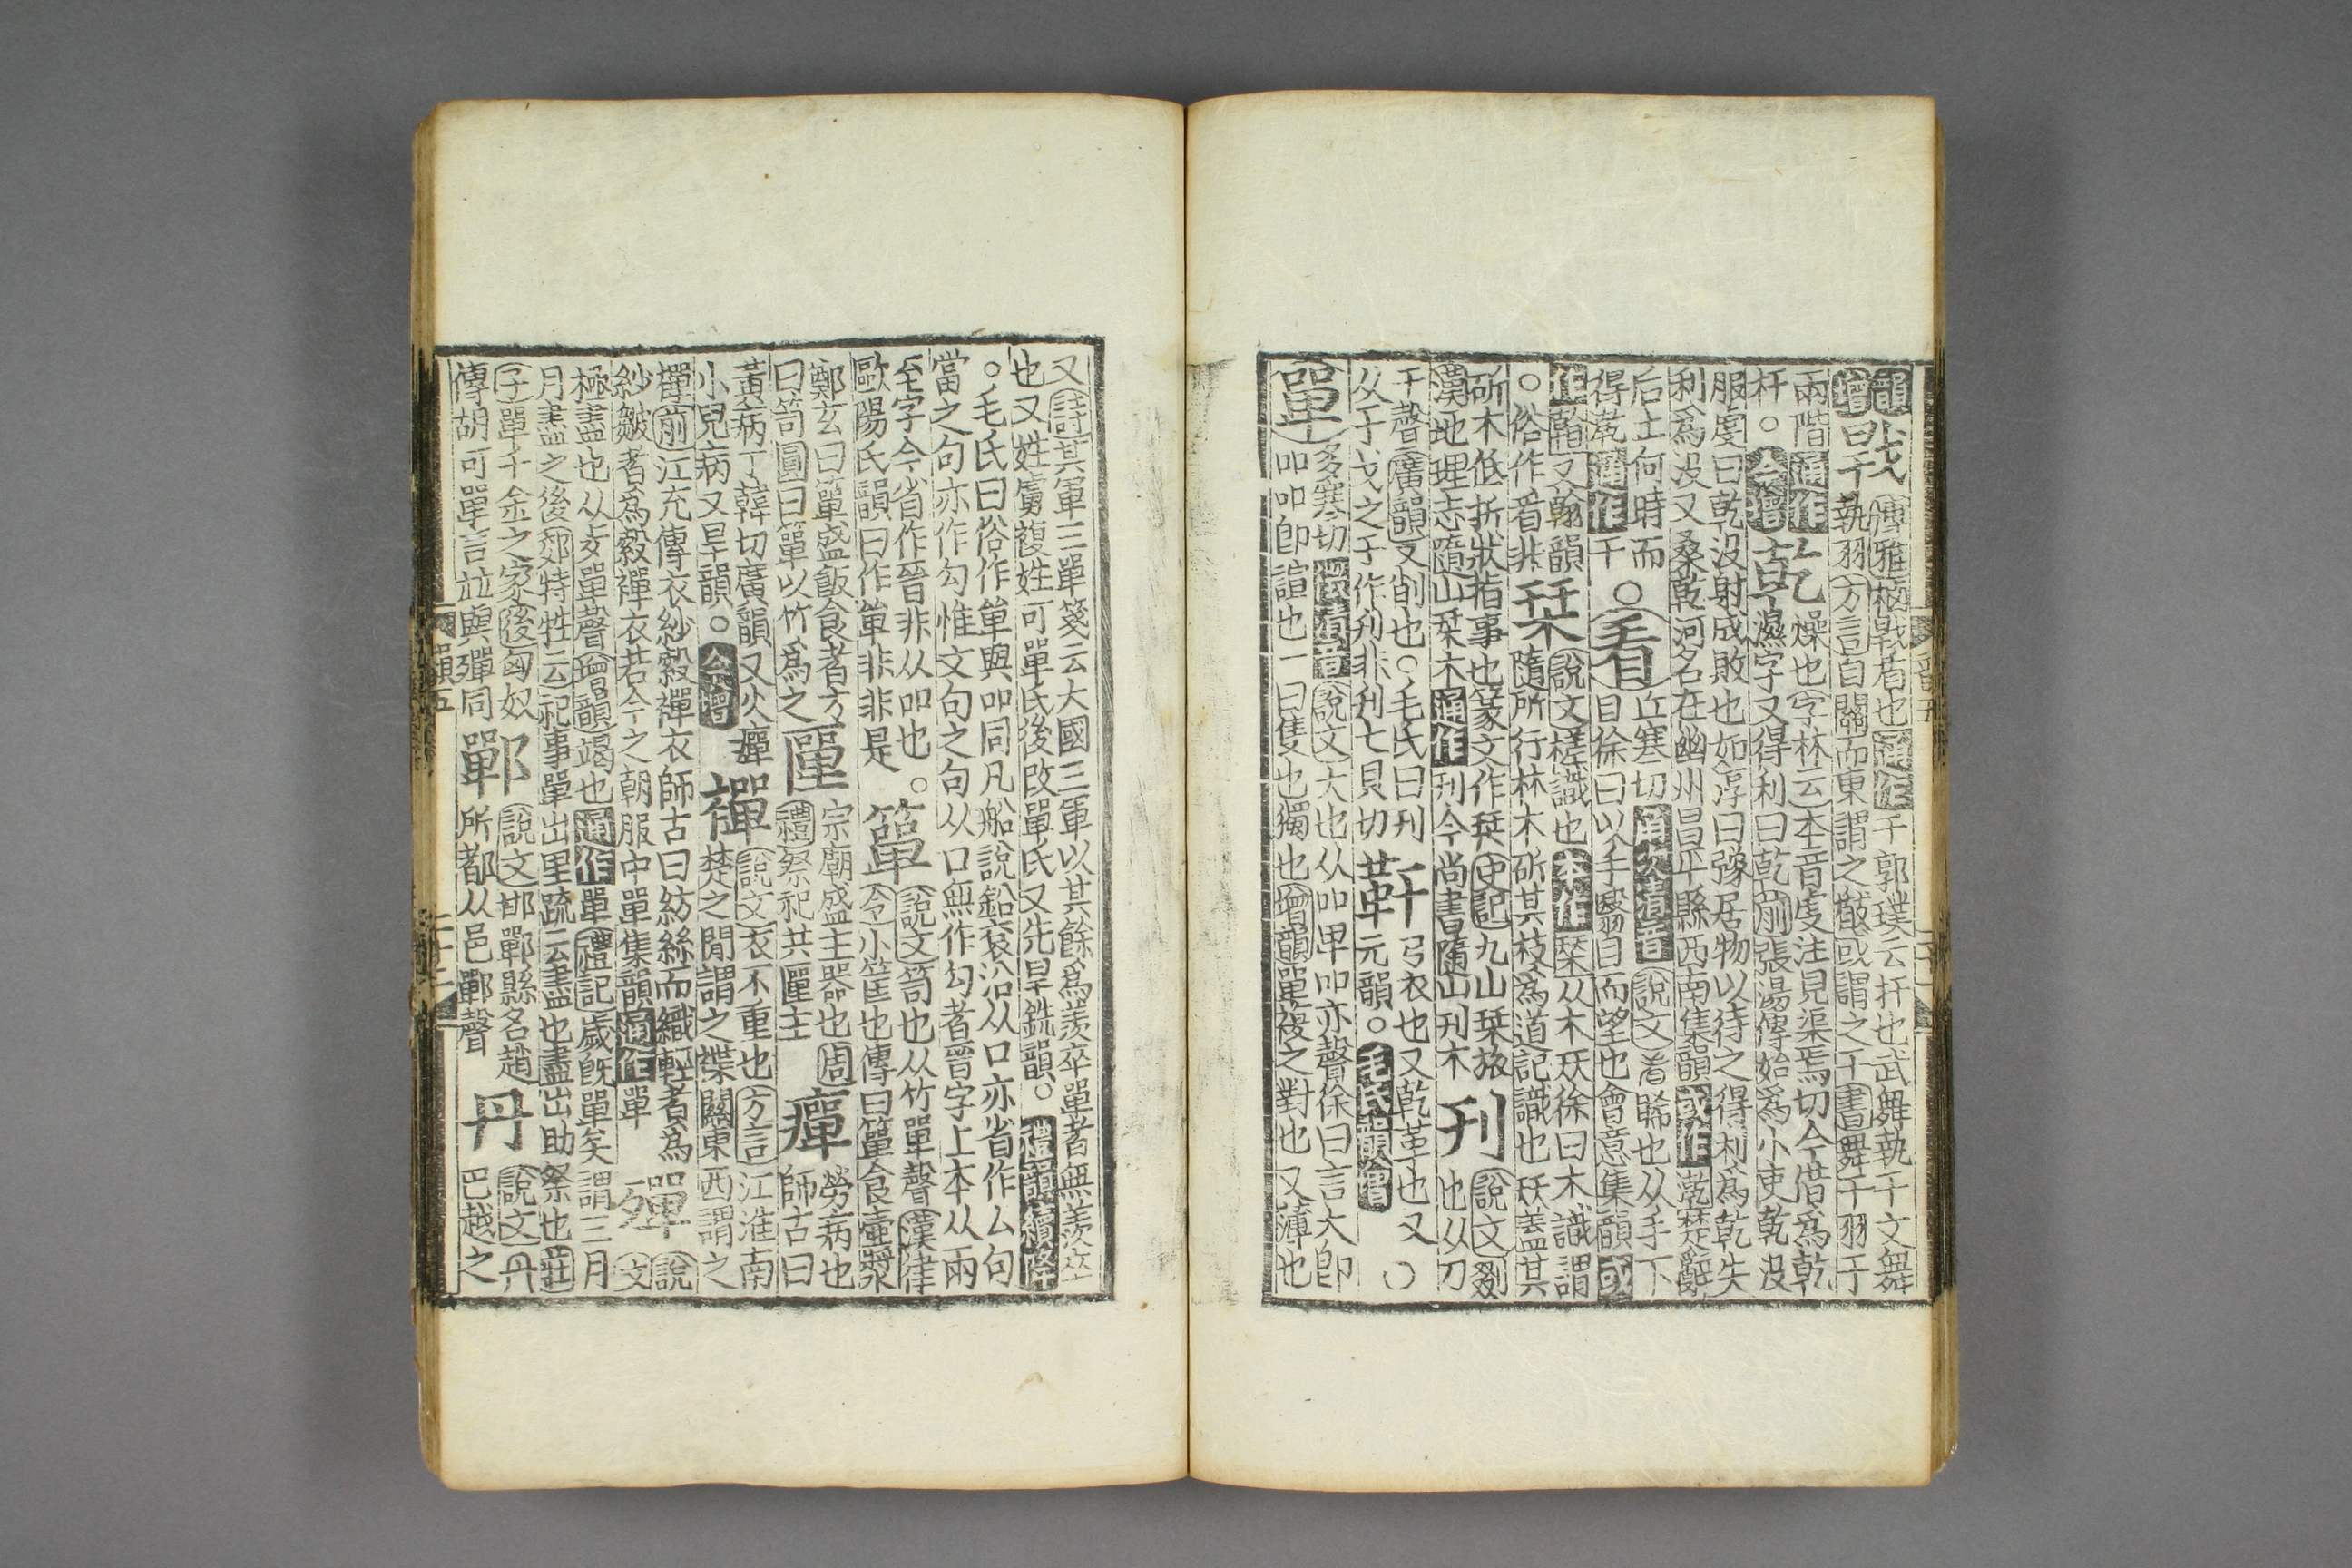 韻
增
㦸
博雅楯㦸者也通作干郭璞云扞也武舞執干文舞
執羽方言自關而東謂之瞂或謂之干書舞干羽于
兩階通作
杆。今增
乾
燥也字林云本音虔注見渠焉切今借爲乾
濕字又得利曰乾前張湯傳始爲小吏乾没
服虔曰乾没射成敗也如淳曰豫居物以待之得利爲乾失
利爲没又桑乾河名在幽州昌平縣西南集韻或作漧楚辭
后土何時而
得漧通作干
○看
丘寒切角次清音說文看睎也从手下
目徐曰以手翳目而望也會意集韻或
作又翰韻
○俗作㸔非
栞
說文槎識也本作栞从木㹜徐曰木識謂
隨所行林木斫其枝爲道記識也㹜盖其
斫木低折狀指事也篆文作栞史記九山栞旅
漢地理志隨山栞木通作刊今尚書隨山刊木
刊
說文剟
也从刀
干聲廣韻又削也○毛氏曰刊
从于戈之干作刋非刋七貝切
靬
弓衣也又乾革也又
元韻。毛氏韻增
○
單
多寒切徵清音說文大也从吅甲吅亦聲徐曰言大卽
吅吅卽諠也一曰隻也獨也增韻單複之對也又薄也
又詩其軍三單箋云大國三軍以其餘爲羨卒單者無羨卒
也又姓虜複姓可單氏後改單氏又先旱銑韻。禮韻續降
。毛氏曰俗作単與吅同凡船說鉛袞沿从口亦省作厶句
當之句亦作勾惟文句之句从口無作勾者晉字上本从兩
至字今省作晉非从吅也。
歐陽氏韻曰作単非非是
簞
說文笥也从竹單聲漢律
令小筐也傳曰簞食壺漿
鄭玄曰簞盛飯食者方
曰笥圓曰簞以竹爲之
匰
宗廟盛主器也周
禮祭祀共匰主
癉
勞病也
師古曰
黃病丁韓切廣韻又火癉
小兒病又旱韻。今增
襌
說文衣不重也方言江淮南
楚之閒謂之褋關東西謂之
襌前江充傳衣紗縠襌衣師古曰紡絲而織輕者爲
紗皺者爲縠襌衣若今之朝服中單集韻通作單
殫
說
文
極盡也从歺單聲增韻竭也通作單禮記歲旣單矣謂三月
月盡之後郊特牲云祀事單出里疏云盡也盡出助祭也莊
子單千金之家後匈奴
傳胡可單言並與殫同
鄲
說文邯鄲縣名趙
所都从邑鄲聲
丹
說文丹
巴越之